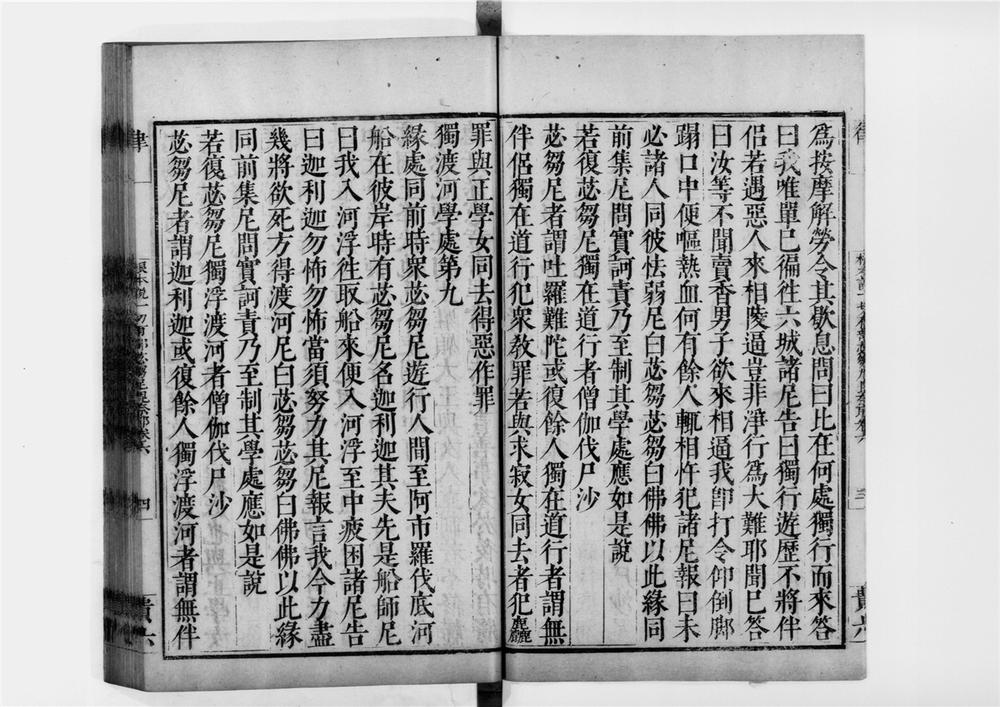 為按摩解勞令其歇息問曰比在何處獨行而來答
曰我唯單已徧徃六城諸尼告曰獨行遊歷不將伴
侣若遇惡人來相陵逼豈非淨行為大難耶聞已答
曰汝等不聞賣香男子欲來相逼我即打令仰倒脚
蹋口中便嘔熱血何有餘人輒相忤犯諸尼報曰未
必諸人同彼怯弱尼白苾芻白佛佛以此緣同
前集尼問實訶責乃至制其學處應如是說
若復苾芻尼獨在道行者僧伽伐尸沙
苾芻尼者謂吐羅難陀或復餘人獨在道行者謂無
伴侣獨在道行犯衆教罪若與求寂女同去者犯麤
罪與正學女同去得惡作罪
獨渡河學處第九
緣處同前時衆苾芻尼遊行人間至阿市羅伐底河
船在彼岸時有苾芻尼名迦利迦其夫先是船師尼
曰我入河浮徃取船來便入河浮至中疲困諸尼告
曰迦利迦勿怖勿怖當須努力其尼報言我今力盡
幾將欲死方得渡河尼白苾芻苾芻白佛佛以此緣
同前集尼問實訶責乃至制其學處應如是說
若復苾芻尼獨浮渡河者僧伽伐尸沙
苾芻尼者謂迦利迦或復餘人獨浮渡河者謂無伴
律
四
貴六
律
三
貴六